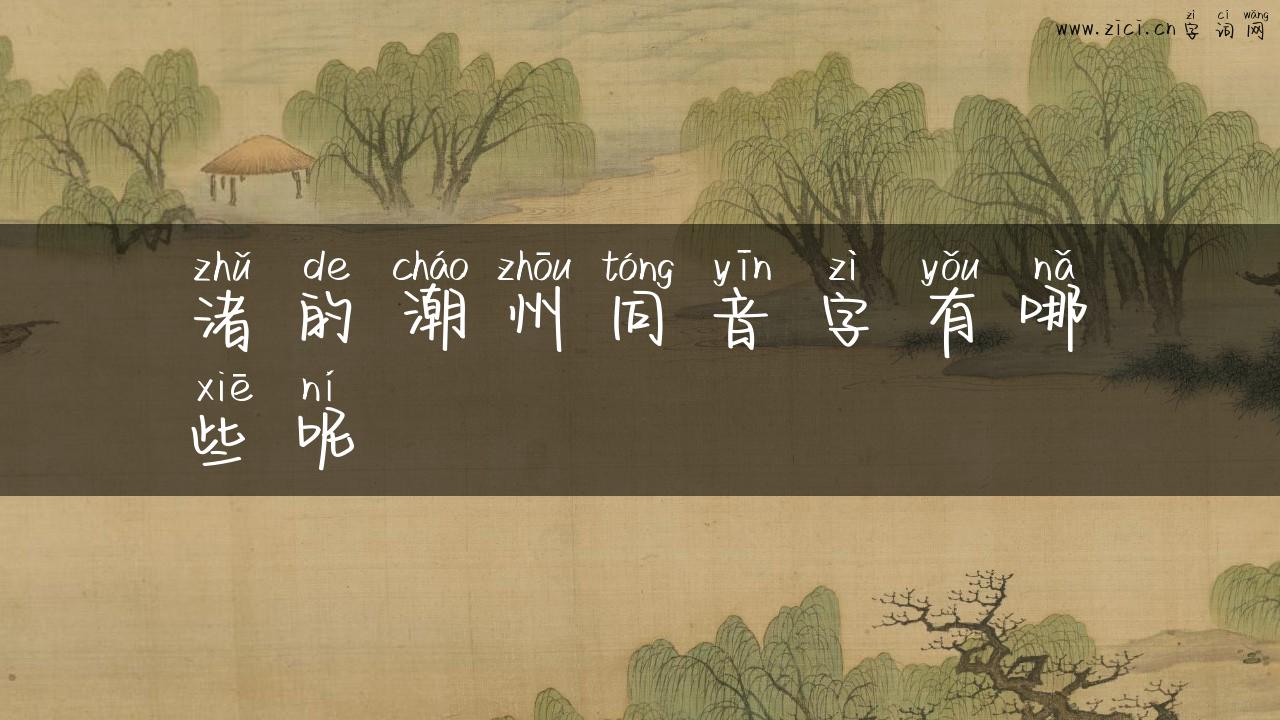 zì cí wǎng
www.zici.cn 字 词 网
zhǔ de cháo zhōu tóng yīn zì yǒu nǎ
渚 的 潮 州 同 音 字 有 哪
xiē ní
些 呢